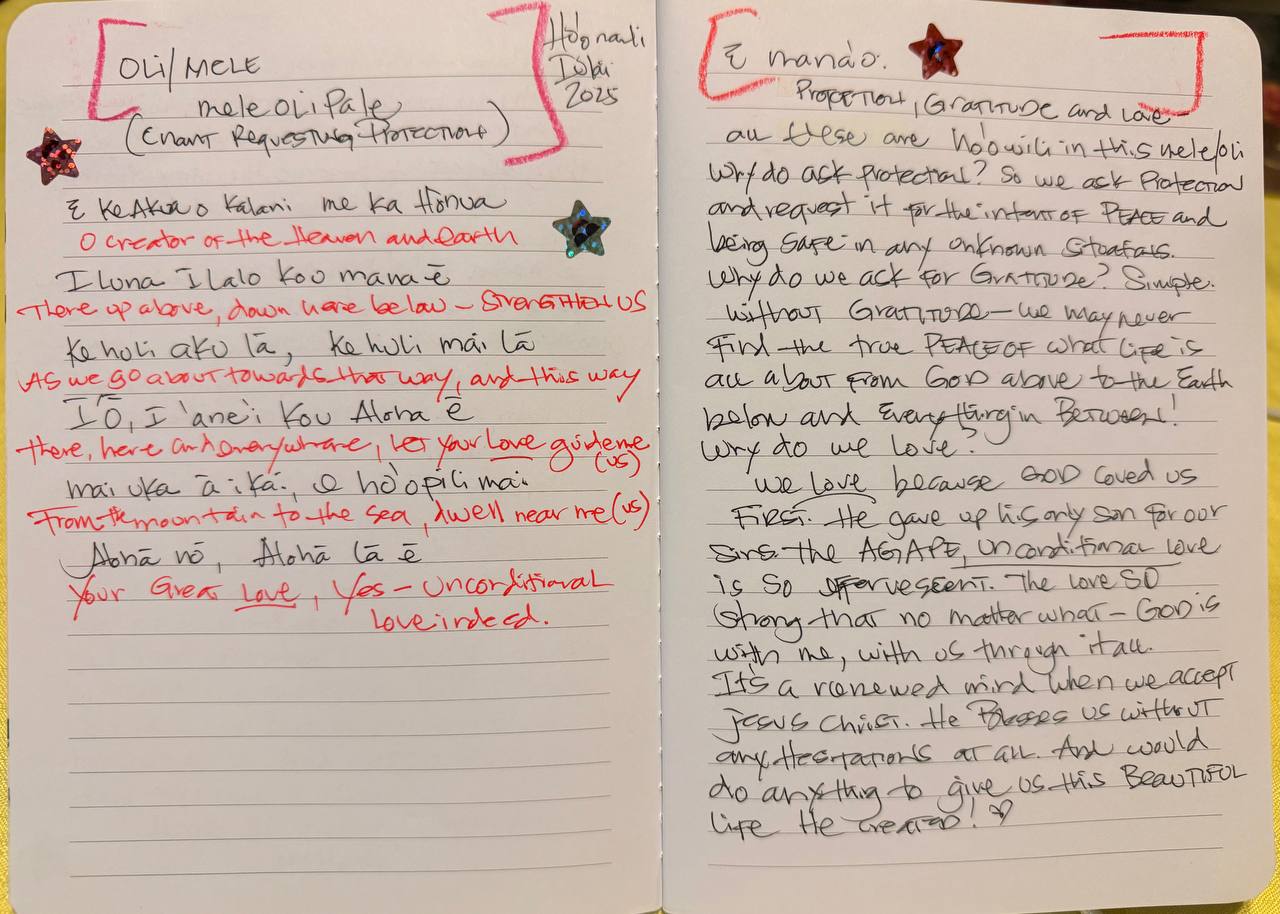 OLI/MELE
mele OLI Pale
(CHANT REQUESTING PROTECTION)
2025
E Ke Akua o Kalani me ka Honua
O creator of the Heaven and earth
I Luna I Lalo Kou mana ē
There up above, down here below – STRENGTHEN US
Ke holi aku lā, Ke holi mai lā
AS we go about towards that way, and this way
I Ō, I 'ane'i Kou Aloha ē
there, here and everywhere, let your Love guide me
(us)
mai uka ā i kai, e ho'opili mai
From the mountain to the sea, dwell near me (us)
Alohā nō, Alohā lā ē
Your Great Love, Yes – Unconditional
Love indeed.
E mana'o:
PROTECTION, GRATITUDE and Love
all these are ho'owili in this mele/oli
Why do ask protection? So we ask Protection
and request it for the intent of PEACE and
being safe in any unknown
Why do we ask for GRATITUDE? Simple.
Without GRATITUDE – we may never
Find the true PEACE OF what Life is
all about from GOD above to the Earth
below and Everything in BETWEEN!
Why do we love?
We Love because GOD Loved us
FIRST. He gave up his only son for our
sins. the AGAPE, unconditional love
is so effervescent. The love SO
strong that no matter what – GOD is
with me, with us through it all.
It's a renewed mind when we accept
Jesus Christ. He Blesses us without
any Hesitations at all. And would
do anything to give us this BEAUTIFUL
life He created!